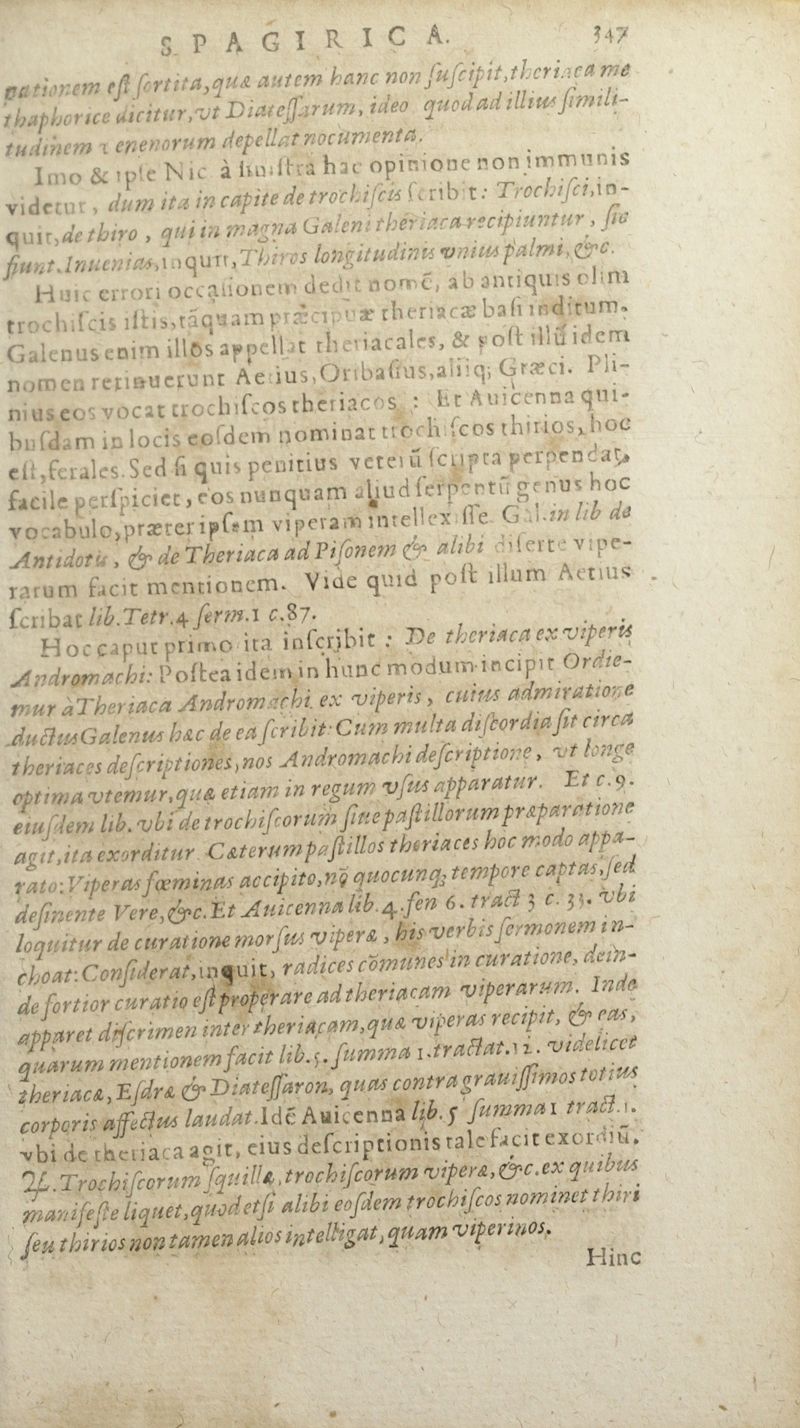 SPAGIRICA. 347
nationem est sortita,quæ autem hanc non suscipit,theriaca me
thaphorice dicitur,vt Diatessarum, ideo quod ad illius simili-
tudinem venenorum depellat nocumenta.
Imo & ipse Nic. à sinistra hac opinione non immunis
videtur, dum ita in capite de trochiscis scribit: Trochisci,in-
quit,de thiro , qui in magna Galeni theriaca recipiuntur , sic
fiunt.Inuenias,inquit,Thiros longitudinis vnius palmi,&c.
Huic errori occasionem dedit nomē, ab antiquis olim
trochiscis istis,tāquam præcipuæ theriacæ basi inditum.
Galenus enim illos appellat theriacales, & post illū idem
nomen retinuerunt Aetius,Oribasius,aliiq; Græci. Pli-
nius eos vocat trochiscos theriacos : Et Auicenna qui-
busdam in locis eosdem nominat trochiscos thirios, hoc
est,ferales. Sed si quis penitius veterū scripta perpendat,
facile perspiciet, eos nunquam aliud serpentū genus hoc
vocabulo,præter ipsam viperam intellexisse. Gal.in lib de
Antidotis, & de Theriaca ad Pisonem & alibi diserte vipe-
rarum facit mentionem. Vide quid post illum Aetius
scribat lib.Tetr.4 serm.1 c.87.
Hoc caput primo ita inscribit : De theriaca ex viperis
Andromachi: Postea idem in hunc modum incipit Ordie-
mur à Theriaca Andromachi ex viperis, cuius admiratione
ductus Galenus hæc de ea scribit: Cum multa discordia sit circa
theriaces descriptiones,nos Andromachi descriptione, vt longe
optima vtemur,quæ etiam in regum vsus apparatur. Et c.9.
eiusdem lib. vbi de trochiscorum siue pastillorum præparatione
agit,ita exorditur. Cæterum pastillos theriaces hoc modo appa-
rato: Viperas fœminas accipito,nō quocunq; tempore captas,sed
desinente Vere,&c. Et Auicenna lib.4.fen 6. tract 3 c. 33. vbi
loquitur de curatione morsus viperæ, his verbis sermonem in-
choat: Considerat,inquit, radices cōmunes in curatione, dein-
de fortior curatio est properare ad theriacam viperarum. Inde
apparet discrimen inter theriacam,quæ viperas recipit, & eas,
quarum mentionem facit lib.5. summa 1.tractat.11. videlicet
theriacæ,Esdræ & Diatessaron, quas contra grauissimos totius
corporis affectus laudat. Idē Auicenna lib.5 summa 1 tract.1.
vbi de theriaca agit, eius descriptionis tale facit exordiū.
℞. Trochiscorum squillæ, trochiscorum viperæ, &c. ex quibus
manifeste liquet,quod etsi alibi eosdem trochiscos nominet thiri
seu thirios non tamen alios intelligat, quam viperinos.
Hinc